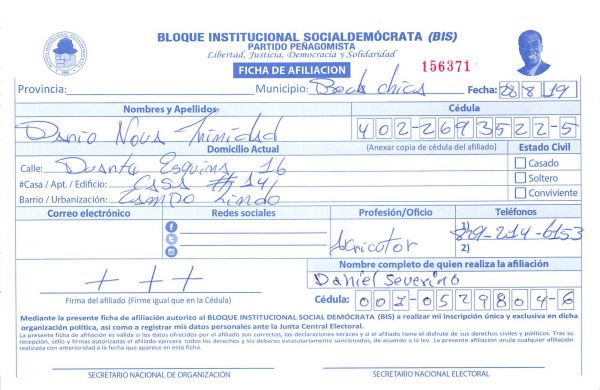 BLOQUE INSTITUCIONAL SOCIALDEMÓCRATA (BIS)
PARTIDO PEÑAGOMISTA
Libertad, Justicia, Democracia y Solidaridad
FICHA DE AFILIACION
156371
Provincia: Municipio: Boca chica Fecha: 28 8 19
Nombres y Apellidos Cédula
Danio Nova Trinidad 402-2693522-5
Domicilio Actual (Anexar copia de cédula del afiliado) Estado Civil
Calle: Duarte Esquina 16 Casado
#Casa / Apt. / Edificio: Casa # 14 Soltero
Barrio / Urbanización: Campo Lindo Conviviente
Correo electrónico Redes sociales Profesión/Oficio Teléfonos
1) 829-214-6153
2)
Nombre completo de quien realiza la afiliación
+ + + Daniel Severino
Firma del afiliado (Firme igual que en la Cédula) Cédula: 001-0529804-6
Mediante la presente ficha de afiliación autorizo al BLOQUE INSTITUCIONAL SOCIAL DEMÓCRATA (BIS) a realizar mi inscripción única y exclusiva en dicha
organización política, así como a registrar mis datos personales ante la Junta Central Electoral.
La presente ficha de afiliación es válida si los datos ofrecidos por el afiliado son correctos, las declaraciones veraces y si el afiliado tiene el disfrute de sus derechos civiles y políticos. Tras su
recepción, sello y firmas autorizadas el afiliado ejercerá todos los derechos y los deberes estatutariamente sancionados, de acuerdo a la ley. La presente afiliación anula cualquier afiliación
realizada con anterioridad a la fecha que aparece en esta ficha.
SECRETARIO NACIONAL DE ORGANIZACIÓN SECRETARIO NACIONAL ELECTORAL